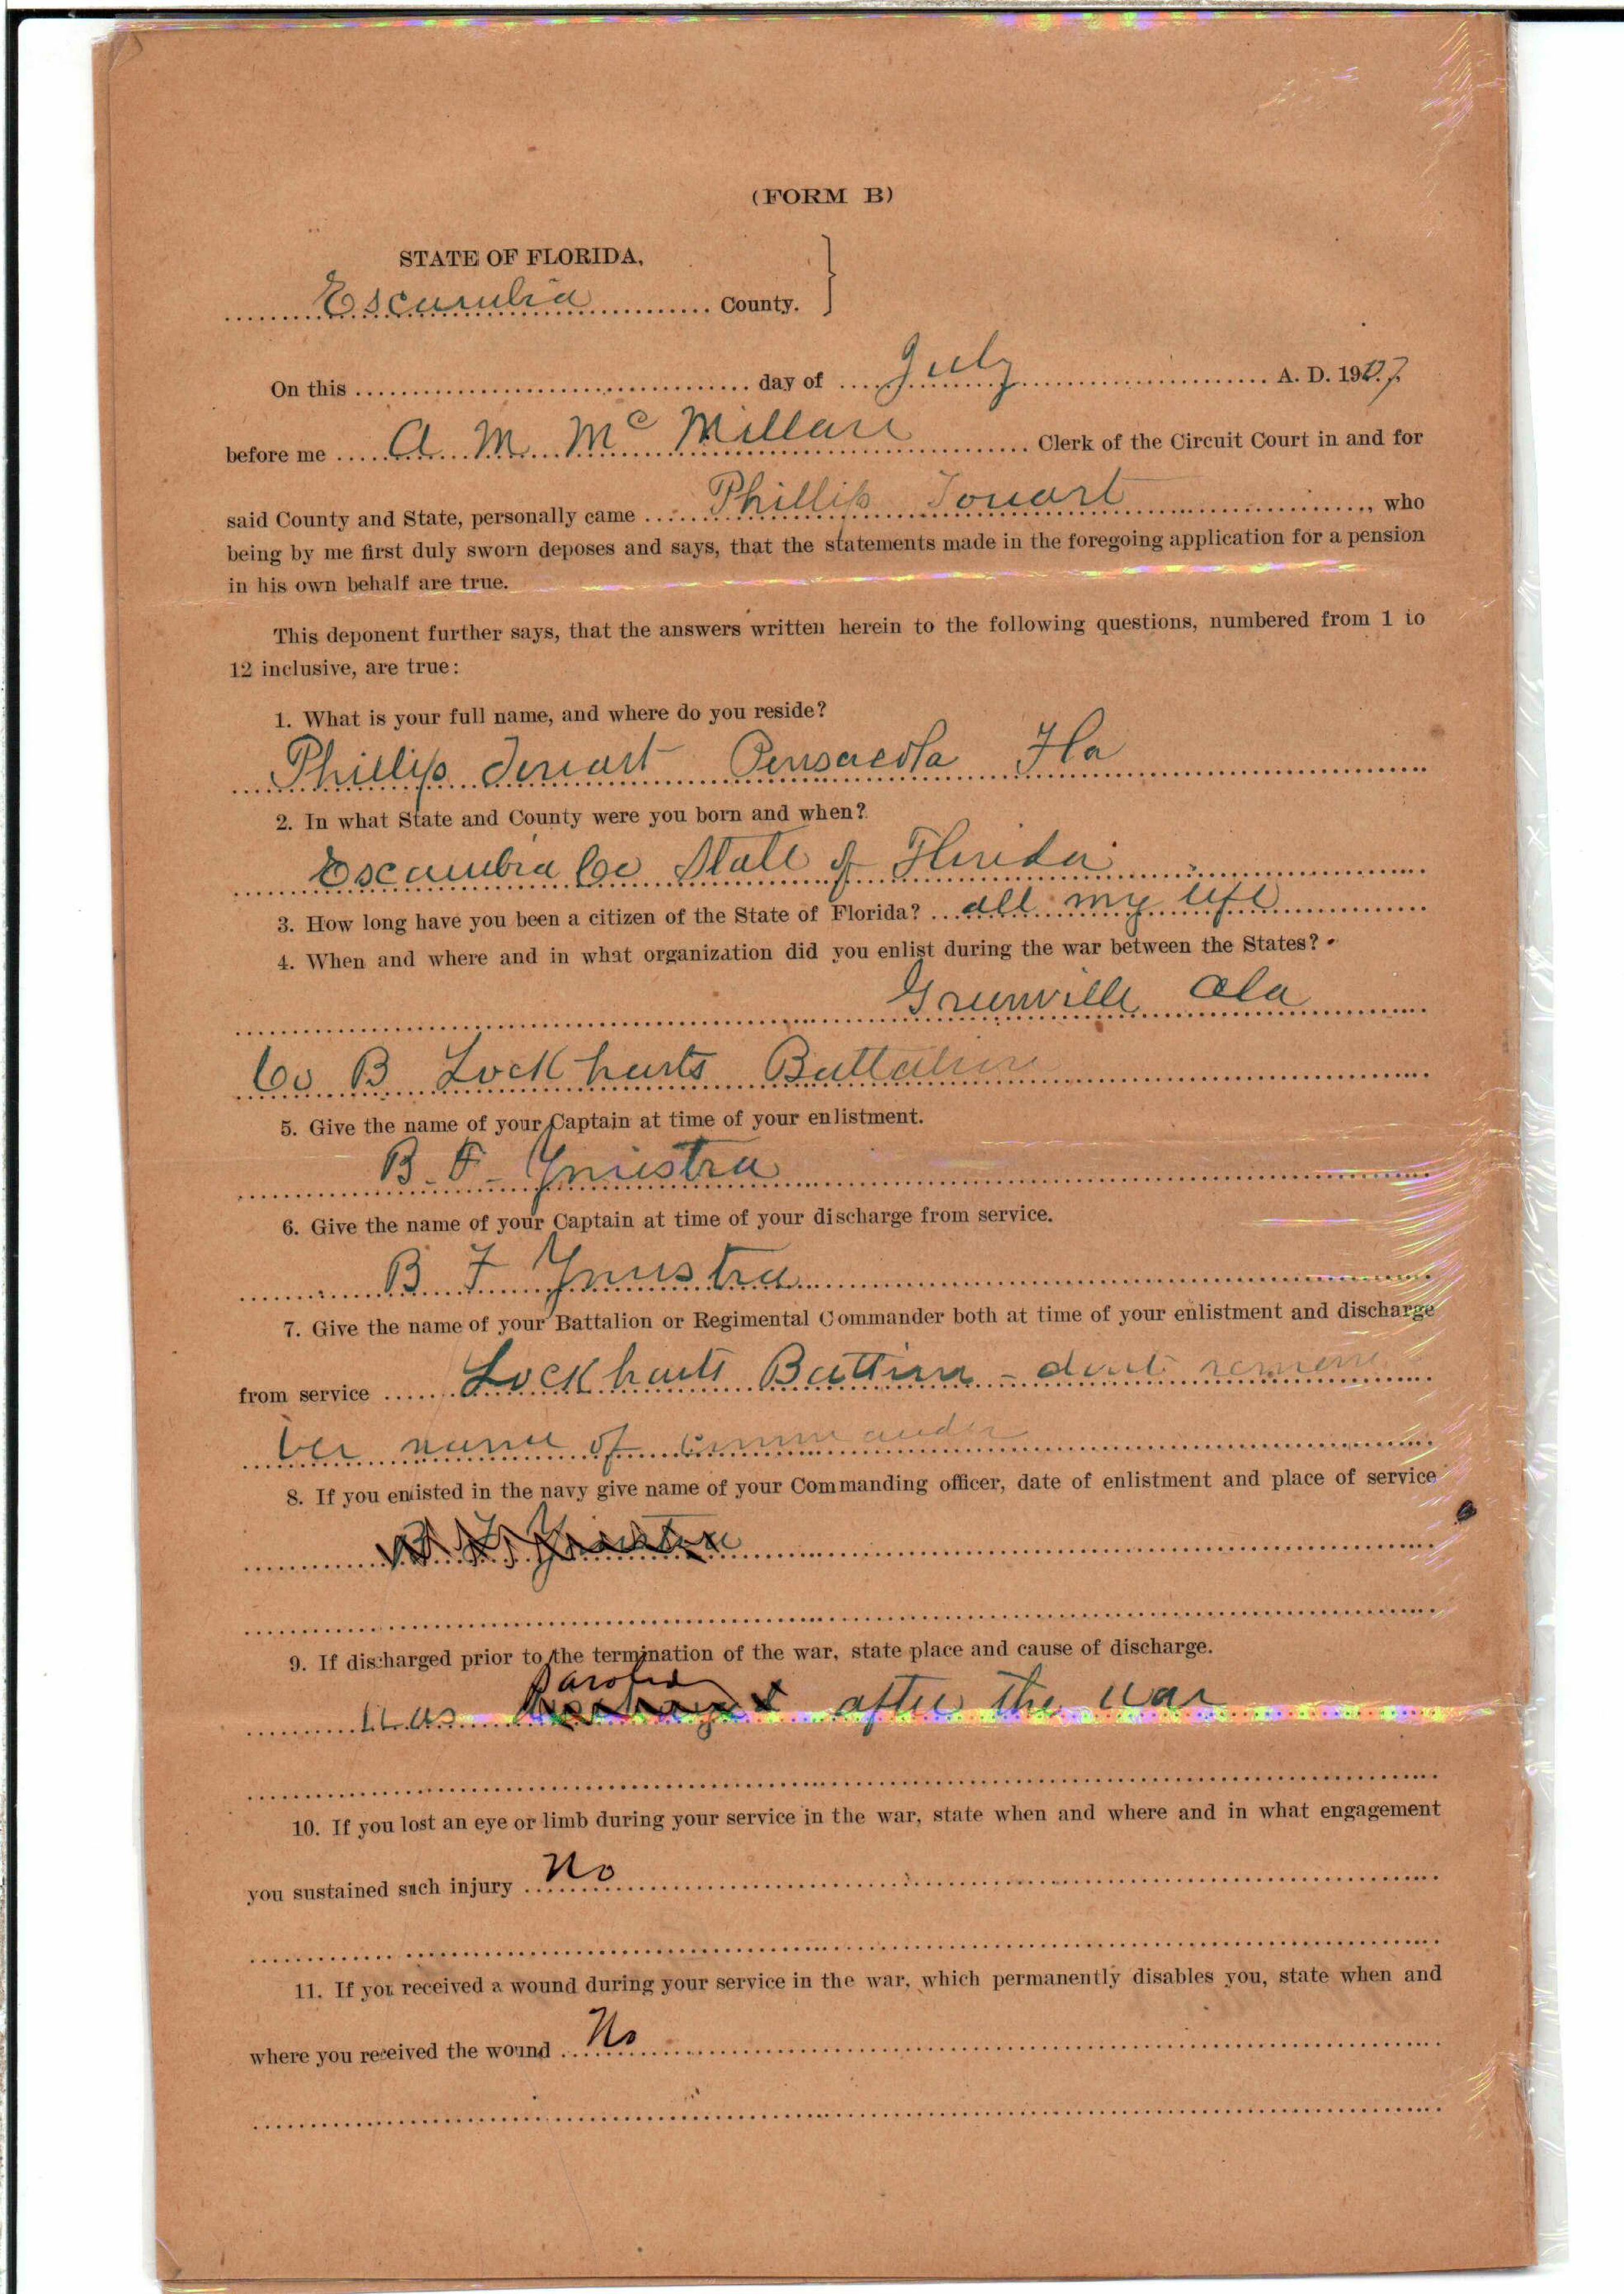 (FORM B)
STATE OF FLORIDA,
Escambia County.
On this day of July A. D. 1907.
before me A. M. Mc Millan Clerk of the Circuit Court in and for
said County and State, personally came Phillip Touart, who
being by me first duly sworn deposes and says, that the statements made in the foregoing application for a pension
in his own behalf are true.
This deponent further says, that the answers written herein to the following questions, numbered from 1 to
12 inclusive, are true:
1. What is your full name, and where do you reside?
Phillip Touart Pensacola Fla
2. In what State and County were you born and when?
Escambia Co State of Florida
3. How long have you been a citizen of the State of Florida? all my life
4. When and where and in what organization did you enlist during the war between the States?
Greenville Ala
Co B Lockharts Battalion
5. Give the name of your Captain at time of your enlistment.
B. F. Yniestra
6. Give the name of your Captain at time of your discharge from service.
B F Yniestra
7. Give the name of your Battalion or Regimental Commander both at time of your enlistment and discharge
from service Lockharts - dont remem
ber name of commander
8. If you enlisted in the navy give name of your Commanding officer, date of enlistment and place of service
B F Yniestra
9. If discharged prior to the termination of the war, state place and cause of discharge.
paroled
was discharged after the war
10. If you lost an eye or limb during your service in the war, state when and where and in what engagement
you sustained such injury No
11. If you received a wound during your service in the war, which permanently disables you, state when and
where you received the wound No